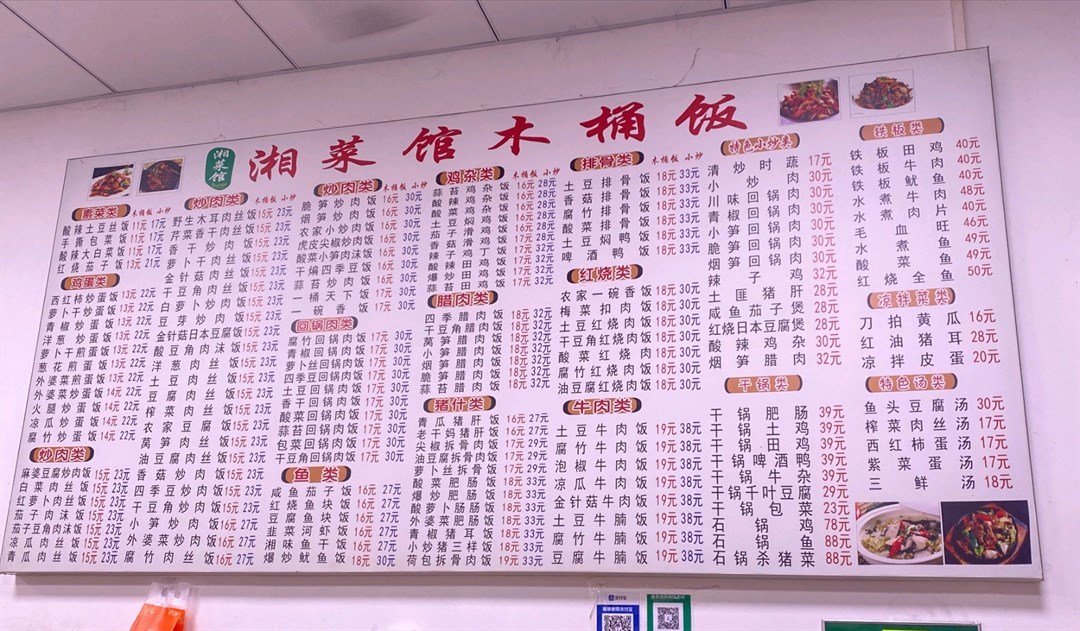 湘菜馆
湘菜馆木桶饭
素菜类 木桶饭 小炒
酸辣土豆丝饭 11元 17元
手撕包菜饭 11元 17元
酸辣大白菜饭 11元 17元
红烧茄子饭 13元 21元
鸡蛋类
西红柿炒蛋饭 13元 22元
萝卜干炒蛋饭 13元 22元
青椒炒蛋饭 13元 22元
洋葱炒蛋饭 13元 22元
萝卜干煎蛋饭 13元 22元
葱花煎蛋饭 13元 22元
外婆菜煎蛋饭 13元 22元
外婆菜炒蛋饭 14元 22元
火腿炒蛋饭 14元 22元
凉瓜炒蛋饭 14元 22元
腐竹炒蛋饭 14元 22元
炒肉类
麻婆豆腐炒肉饭 15元 23元
白菜肉丝饭 15元 23元
红萝卜肉丝饭 15元 23元
茄子肉沫饭 15元 23元
茄子豆角肉沫饭 15元 23元
凉瓜肉丝饭 15元 23元
青瓜肉丝饭 15元 23元
炒肉类 木桶饭 小炒
野生木耳肉丝饭 15元 23元
芹菜香干肉丝饭 15元 23元
香干炒肉饭 15元 23元
萝卜干肉丝饭 15元 23元
金针菇肉丝饭 15元 23元
干豆角肉丝饭 15元 23元
白萝卜炒肉饭 15元 23元
豆芽炒肉饭 15元 23元
金针菇日本豆腐饭 15元 23元
酸豆角肉沫饭 15元 23元
洋葱肉丝饭 15元 23元
土豆肉丝饭 15元 23元
豆腐肉丝饭 15元 23元
榨菜肉丝饭 15元 23元
农家豆腐饭 15元 23元
莴笋肉丝饭 15元 23元
油豆腐肉丝饭 15元 23元
香菇炒肉饭 15元 23元
四季豆炒肉饭 15元 23元
干豆角炒肉饭 15元 23元
小笋炒肉饭 16元 27元
外婆菜炒肉饭 16元 27元
腐竹肉丝饭 16元 27元
炒肉类 木桶饭 小炒
脆笋炒肉饭 16元 30元
烟笋炒肉饭 16元 30元
农家小炒肉饭 16元 30元
虎皮尖椒炒肉饭 16元 30元
酸菜小笋肉沫饭 16元 30元
干煸四季豆饭 16元 30元
蒜苔炒肉饭 16元 30元
一桶天下饭 17元 30元
一碗香饭 17元 30元
回锅肉类
腐竹回锅肉饭 17元 30元
青椒回锅肉饭 17元 30元
萝卜丝回锅肉饭 17元 30元
四季豆回锅肉饭 17元 30元
土豆回锅肉饭 17元 30元
香干回锅肉饭 17元 30元
酸菜回锅肉饭 17元 30元
蒜苔回锅肉饭 17元 30元
包菜回锅肉饭 17元 30元
干豆角回锅肉饭 17元 30元
鱼类
咸鱼茄子饭 16元 27元
红烧鱼块饭 16元 27元
豆腐鱼块饭 16元 27元
韭菜河虾饭 16元 27元
湘味鱼干饭 16元 27元
爆炒鱿鱼饭 18元 30元
鸡杂类 木桶饭 小炒
蒜苔鸡杂饭 16元 28元
酸辣鸡杂饭 16元 28元
酸菜鸡杂饭 16元 28元
土豆焖鸡饭 16元 28元
茄子滑鸡饭 16元 28元
香菇滑鸡饭 17元 32元
辣子鸡丁饭 17元 32元
酸辣田鸡饭 17元 32元
爆炒田鸡饭 17元 32元
蒜苔田鸡饭 17元 32元
腊肉类
四季腊肉饭 18元 32元
干豆角腊肉饭 18元 32元
莴笋腊肉饭 18元 32元
小笋腊肉饭 18元 32元
烟笋腊肉饭 18元 32元
脆笋腊肉饭 18元 32元
蒜苔腊肉饭 18元 32元
猪什类
青瓜猪肝饭 16元 27元
老干妈猪肝饭 16元 27元
尖椒拆骨肉饭 17元 29元
油豆腐拆骨肉饭 17元 29元
萝卜丝拆骨饭 17元 29元
酸菜肥肠饭 18元 33元
爆炒肥肠饭 18元 33元
酸萝卜肠肠饭 18元 33元
外婆菜肥肠饭 18元 33元
青椒猪耳饭 18元 33元
小炒猪三样饭 18元 33元
荷包拆骨肉饭 19元 33元
排骨类 木桶饭 小炒
土豆排骨饭 18元 33元
香菇排骨饭 18元 33元
腐竹排骨饭 18元 33元
酸菜排骨饭 18元 33元
土豆焖鸭饭 18元 33元
啤酒鸭饭 18元 33元
红烧类
农家一碗香饭 18元 30元
梅菜扣肉饭 18元 30元
土豆红烧肉饭 18元 30元
干豆角红烧肉饭 18元 30元
酸菜红烧肉饭 18元 30元
腐竹红烧肉饭 18元 30元
油豆腐红烧肉饭 18元 30元
牛肉类
土豆牛肉饭 19元 38元
腐竹牛肉饭 19元 38元
泡椒牛肉饭 19元 38元
凉瓜牛肉饭 19元 38元
金针菇牛肉饭 19元 38元
土豆牛腩饭 19元 38元
腐竹牛腩饭 19元 38元
豆腐牛腩饭 19元 38元
特色小炒类
清炒时蔬 17元
小炒肉 30元
川味回锅肉 30元
青椒回锅肉 30元
小笋焖回锅肉 30元
脆笋回锅肉 30元
烟笋回锅肉 30元
辣子鸡 32元
土匪猪肝 28元
咸鱼茄子煲 28元
红烧日本豆腐煲 28元
酸辣鸡杂 30元
烟笋腊肉 32元
干锅类
干锅肥肠 39元
干锅土鸡 39元
干锅田鸡 39元
干锅啤酒鸭 39元
干锅牛杂 39元
干锅千叶豆腐 29元
干锅包菜 23元
石锅鸡 78元
石锅鱼 88元
石锅杀猪菜 88元
铁板类
铁板田鸡 40元
铁板牛肉 40元
铁板鱿鱼 40元
水煮牛肉 48元
水煮肉片 40元
毛血旺 46元
水煮鱼 49元
酸菜鱼 49元
红烧全鱼 50元
凉拌菜类
刀拍黄瓜 16元
红油猪耳 28元
凉拌皮蛋 20元
特色汤类
鱼头豆腐汤 30元
榨菜肉丝汤 17元
西红柿蛋汤 17元
紫菜蛋汤 17元
三鲜汤 18元
支付宝